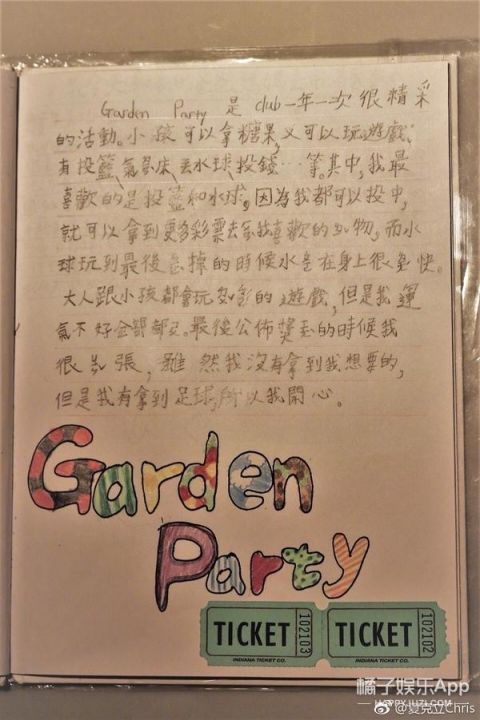 Garden Party 是 club 一年一次 很精采
的活動。小孩可以拿糖果,又可以玩遊戲,
有投籃、氣墊床、丟水球、投錢…等。其中,我最
喜歡的是投籃和水球。因為我都可以投中,
就可以拿到更多彩票去 我喜歡的 物,而水
球玩到最後 掉的時候水 在身上很 快。
大人跟小孩都會玩 的遊戲,但是我運
氣不好全部都 。最後公佈獎 的時候我
很 張,雖然我沒有拿到我想要的,
但是我有拿到足球,所以我開心。
Garden
Party
TICKET 102103 TICKET 102102
INDIANA TICKET CO. INDIANA TICKET CO.
橘子娱乐App
HAPPYJUZI.COM
@夏克立Chris